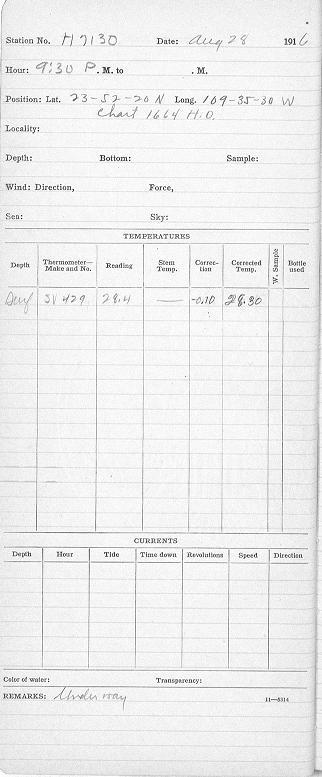 Station No. H7130 Date: Aug 28 1916
Hour: 9:30 P. M. to . M.
Position: Lat. 23-52-20 N Long. 109-35-30 W
Chart 1664 H.O.
Locality:
Depth: Bottom: Sample:
Wind: Direction, Force,
Sea: Sky:
TEMPERATURES
Depth Thermometer—Make and No. Reading Stem Temp. Correction Corrected Temp. W. Sample Bottle used
Surf SV 429 28.4 — -0.10 28.30
CURRENTS
Depth Hour Tide Time down Revolutions Speed Direction
Color of water: Transparency:
REMARKS: Under way 11—5314